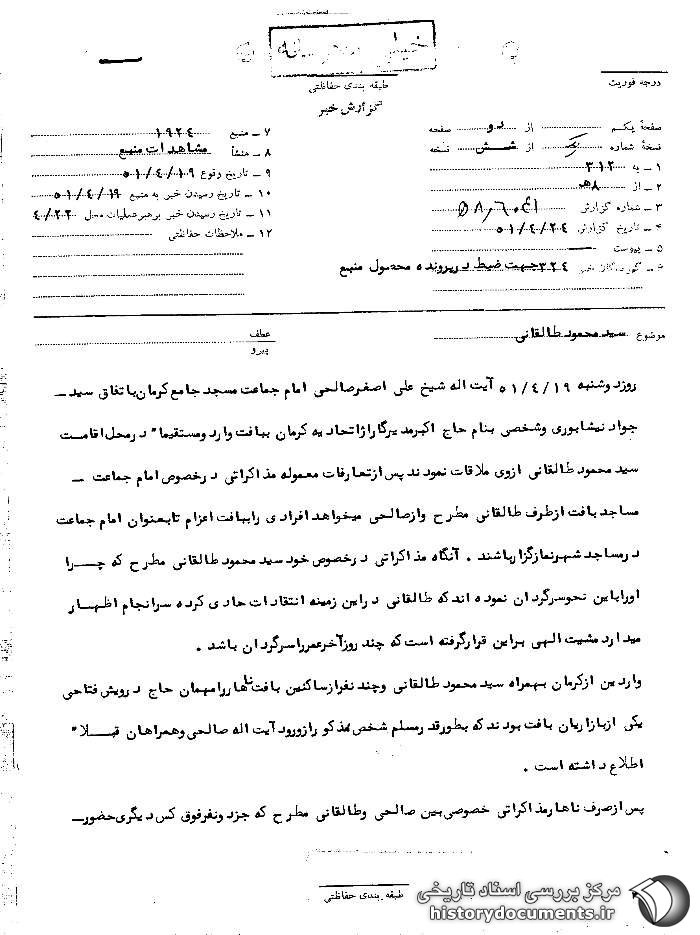 خیلی محرمانه
طبقه بندی حفاظتی
درجه فوریت
گزارش خبر
صفحهٔ یکم از دو صفحه
نسخهٔ شماره از شش نسخه
۱ – به ۳۱۲
۲ – از ۸ هـ
۳ – شماره گزارش
۴ – تاریخ گزارش ۵۱/۴/۲۴
۵ – پیوست
خبر ۳۲۴ جهت ضبط در پرونده محصول منبع
۷ – منبع ۱۹۲۴
۸ – منشأ مشاهدات منبع
۹ – تاریخ وقوع ۵۱/۴/۱۹
۱۰ – تاریخ رسیدن خبر به منبع ۵۱/۴/۱۹
۱۱ – تاریخ رسیدن خبر برهبر عملیات محل ۴/۲۲
۱۲ – ملاحظات حفاظتی
موضوع سید محمود طالقانی
عطف
پیرو
روز دوشنبه ۵۱/۴/۱۹ آیت اله شیخ علی اصغر صالحی امام جماعت مسجد جامع کرمان باتفاق سید –
جواد نیشابوری وشخصی بنام حاج اکبر مدیر گاراژ اتحادیه کرمان ببافت وارد ومستقیما" در محل اقامت
سید محمود طالقانی ازوی ملاقات نمودند پس از تعارفات معموله مذاکراتی در خصوص امام جماعت –
مساجد بافت از طرف طالقانی مطرح واز صالحی میخواهد افرادی را ببافت اعزام تا بعنوان امام جماعت
در مساجد شهر نماز گزار باشند . آنگاه مذاکراتی در خصوص خود سید محمود طالقانی مطرح که چـــرا
اورا باین نحو سرگردان نموده اند که طالقانی در این زمینه انتقادات حادی کرده سرانجام اظهـــار
میدارد مشیت الهی براین قرار گرفته است که چند روز آخر عمر را سرگردان باشد .
واردین از کرمان بهمراه سید محمود طالقانی وچند نفر از ساکنین بافت ناهار را مهمان حاج درویش فتاحی
یکی از بازاریان بافت بودند که بطور قدر مسلم شخص مذکور از ورود آیت اله صالحی وهمراهان قبـــلا"
اطلاع داشته است .
پس از صرف ناهار مذاکراتی خصوصی بین صالحی وطالقانی مطرح که جز دونفر فوق کس دیگری حضور –
طبقه بندی حفاظتی
مرکز بررسی اسناد تاریخی
historydocuments.ir